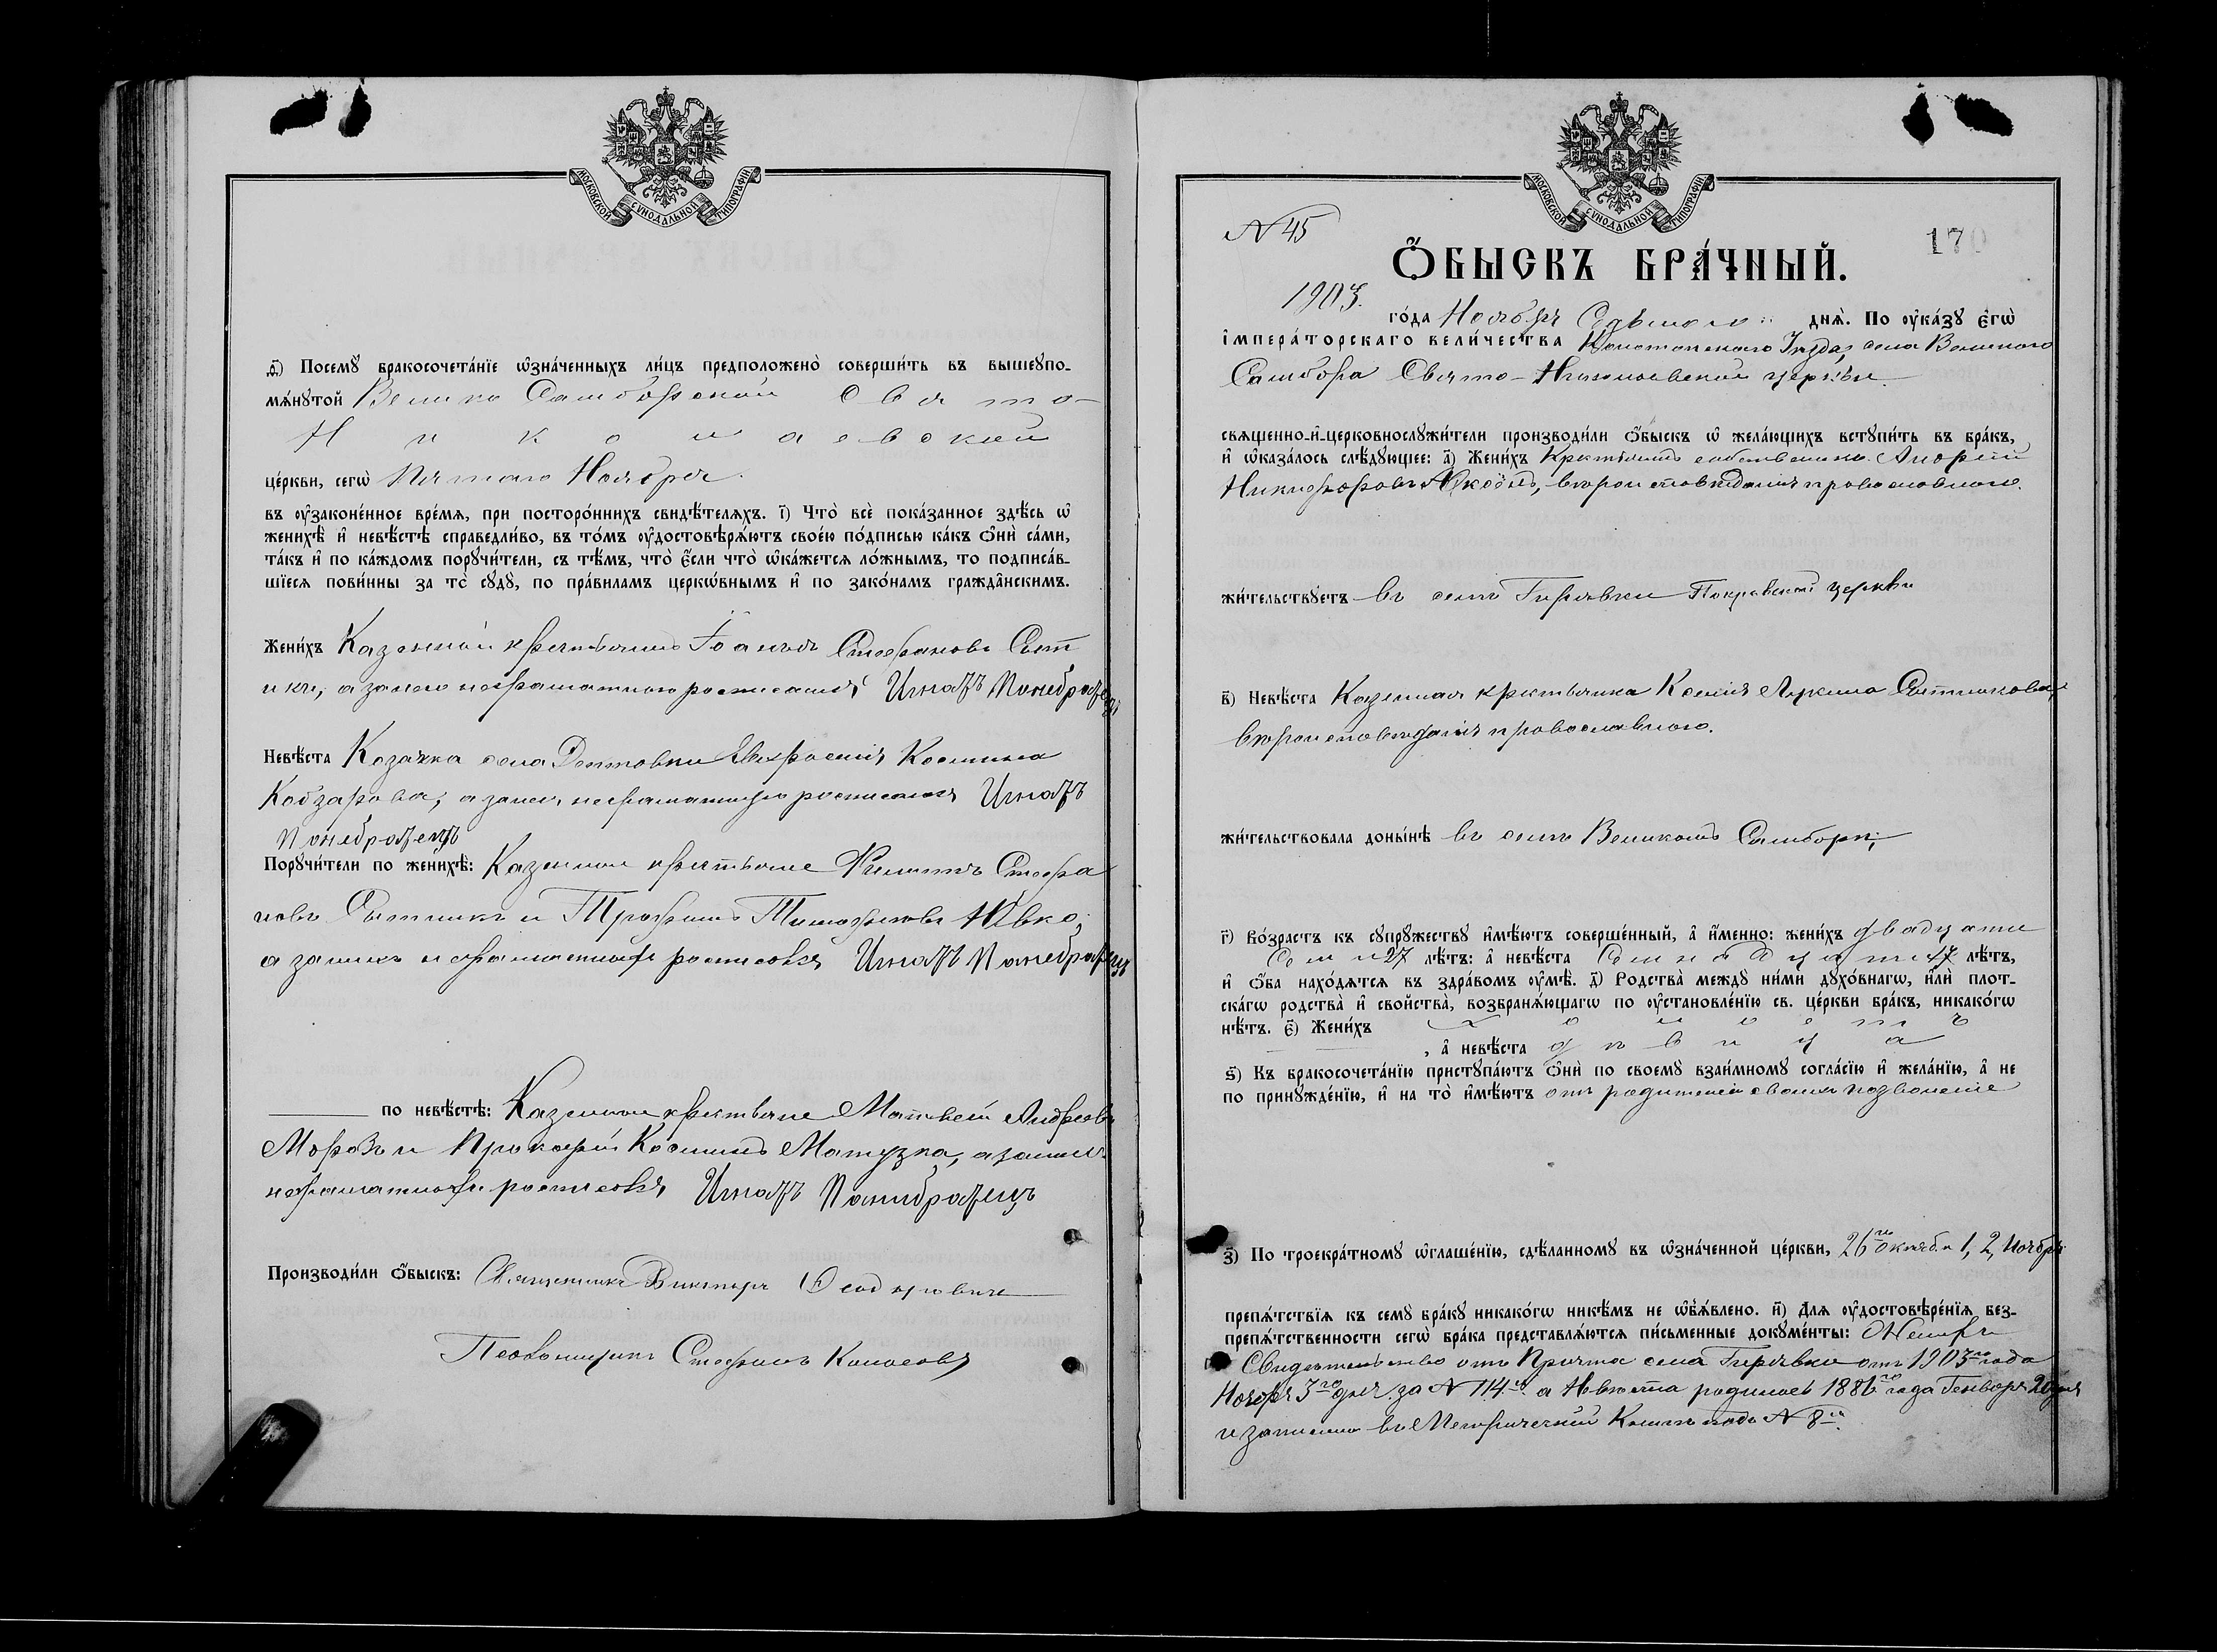 МОСКОВСКОЙ СѴНОДАЛЬНОЙ ТИПОГРАФІИ
д҃і) Посемꙋ̀ бракосочета́нїе ѡ҆зна́ченныхъ ли́цъ предположено̀ соверши́ть въ вышеꙋпо-
мѧ́нꙋтой Велико Самборской Свято-
Николаевской
це́ркви, сегѡ̀ Пятаго Ноября
въ ᲂу҆зако́ненное вре́мѧ, при посторо́ннихъ свидѣ́телѧхъ. і҃) Что̀ всѐ пока́занное здѣ́сь ѡ҆
женихѣ̀ и҆ невѣ́стѣ справедли́во, въ то́мъ ᲂу҆достовѣрѧ́ютъ свое́ю по́дписью ка́къ ѻ҆нѝ са́ми,
та́къ и҆ по ка́ждомъ порꙋчи́тели, съ тѣ́мъ, что̀ є҆́сли что̀ ѡ҆ка́жетсѧ ло́жнымъ, то подписа́в-
шїесѧ пови́нны за то̀ сꙋдꙋ̀, по пра́виламъ церкѡ́внымъ и҆ по зако́намъ гражда̑нскимъ.
Жени́хъ Казенный крестьянинъ Іоаннъ Стефановъ Сыт
никъ, а за него неграматного росписался Игнатъ Панибратецъ
Невѣ́ста Козачка села Дептовки Евфросинія Космина
Кобзарова, а за нея неграматную росписался Игнатъ
Панебратецъ
Порꙋчи́тели по женихѣ̀: Казенные крестьяне Филиппъ Стефа
новъ Сытникъ и Трофимъ Тимофеевъ
а за нихъ неграматныхъ росписовся Игнатъ Панебратецъ
по невѣ́стѣ: Казенные крестьяне Матвей Андреевъ
Морозъ и Прокофій Косминъ Матузка, а за нихъ
неграматныхъ росписовся Игнатъ Панибратецъ
Производи́ли ѻ҆́быскъ: Священникъ Викторъ
Псаломщикъ Стефанъ Колосовъ
МОСКОВСКОЙ СѴНОДАЛЬНОЙ ТИПОГРАФІИ
N 45
170
Ѻ҆́БЫСКЪ БРА́ЧНЫЙ.
1903. го́да Ноября Седьмого днѧ̀. По ᲂу҆ка́зꙋ є҆гѡ̀
і҆мпера́торскаго вели́чества Конотопского Уезда, села Великого
Самбора Свято-Николаевской церкви
свѧщенно-и҆-церковнослꙋжи́тели производи́ли ѻ҆́быскъ ѡ҆ жела́ющихъ встꙋпи́ть въ бра́къ,
и҆ ѡ҆каза́лось слѣ́дꙋющее: а҃) Жени́хъ Крестьянинъ собственникъ Андрей
Никифоровъ вероисповеданія провославного.
жи́тельствꙋетъ въ селе Гирявки Покровской церкви
в҃) Невѣ́ста Казенная крестьянка Ксенія Лукина Сытникова,
вероисповеданія провославного.
жи́тельствовала доны́нѣ въ селе Великомъ Самборе;
г҃) Во́зрастъ къ сꙋпрꙋ́жествꙋ и҆мѣ́ютъ соверше́нный, а҆ и҆́менно: жени́хъ двадцати
Семи 27 лѣ́тъ: а҆ невѣ́ста Семнадцати 17 лѣ́тъ,
и҆ ѻ҆́ба нахо́дѧтсѧ въ здра́вомъ ᲂу҆мѣ̀. д҃) Родства̀ междꙋ ни́ми дꙋхо́внагѡ, и҆лѝ плот-
ска́гѡ родства̀ и҆ сво́йства, возбранѧ́ющагѡ по ᲂу҆становле́нїю св. це́ркви бра́къ, никако́гѡ
нѣ́тъ. є҃) Жени́хъ холостъ
, а҆ невѣ́ста девица
ѕ҃) Къ бракосочета́нїю пристꙋпа́ютъ ѻ҆нѝ по своемꙋ̀ взаи́мномꙋ согла́сїю и҆ жела́нїю, а҆ не
по принꙋжде́нїю, и҆ на то̀ и҆мѣ́ютъ отъ родителей своихъ позволеніе
з҃) По троекра́тномꙋ ѡ҆глаше́нїю, сдѣ́ланномꙋ въ ѡ҆зна́ченной це́ркви, 26го Октябр. 1, 2, Ноября
препѧ́тствїѧ къ семꙋ̀ бра́кꙋ никако́гѡ никѣ́мъ не ѡ҆б̾ѧ́влено. и҃) Длѧ ᲂу҆достовѣре́нїѧ без-
препѧ́тственности сегѡ̀ бра́ка представлѧ́ютсѧ пи́сьменные докꙋме́нты:
Свидетельство отъ Причта села Гирявки отъ 1903го года
Ноября 3го дня за N 114 а Невеста родилась 1886го года Генваря 20 дня
и записана въ Метрической Книге подъ N 8